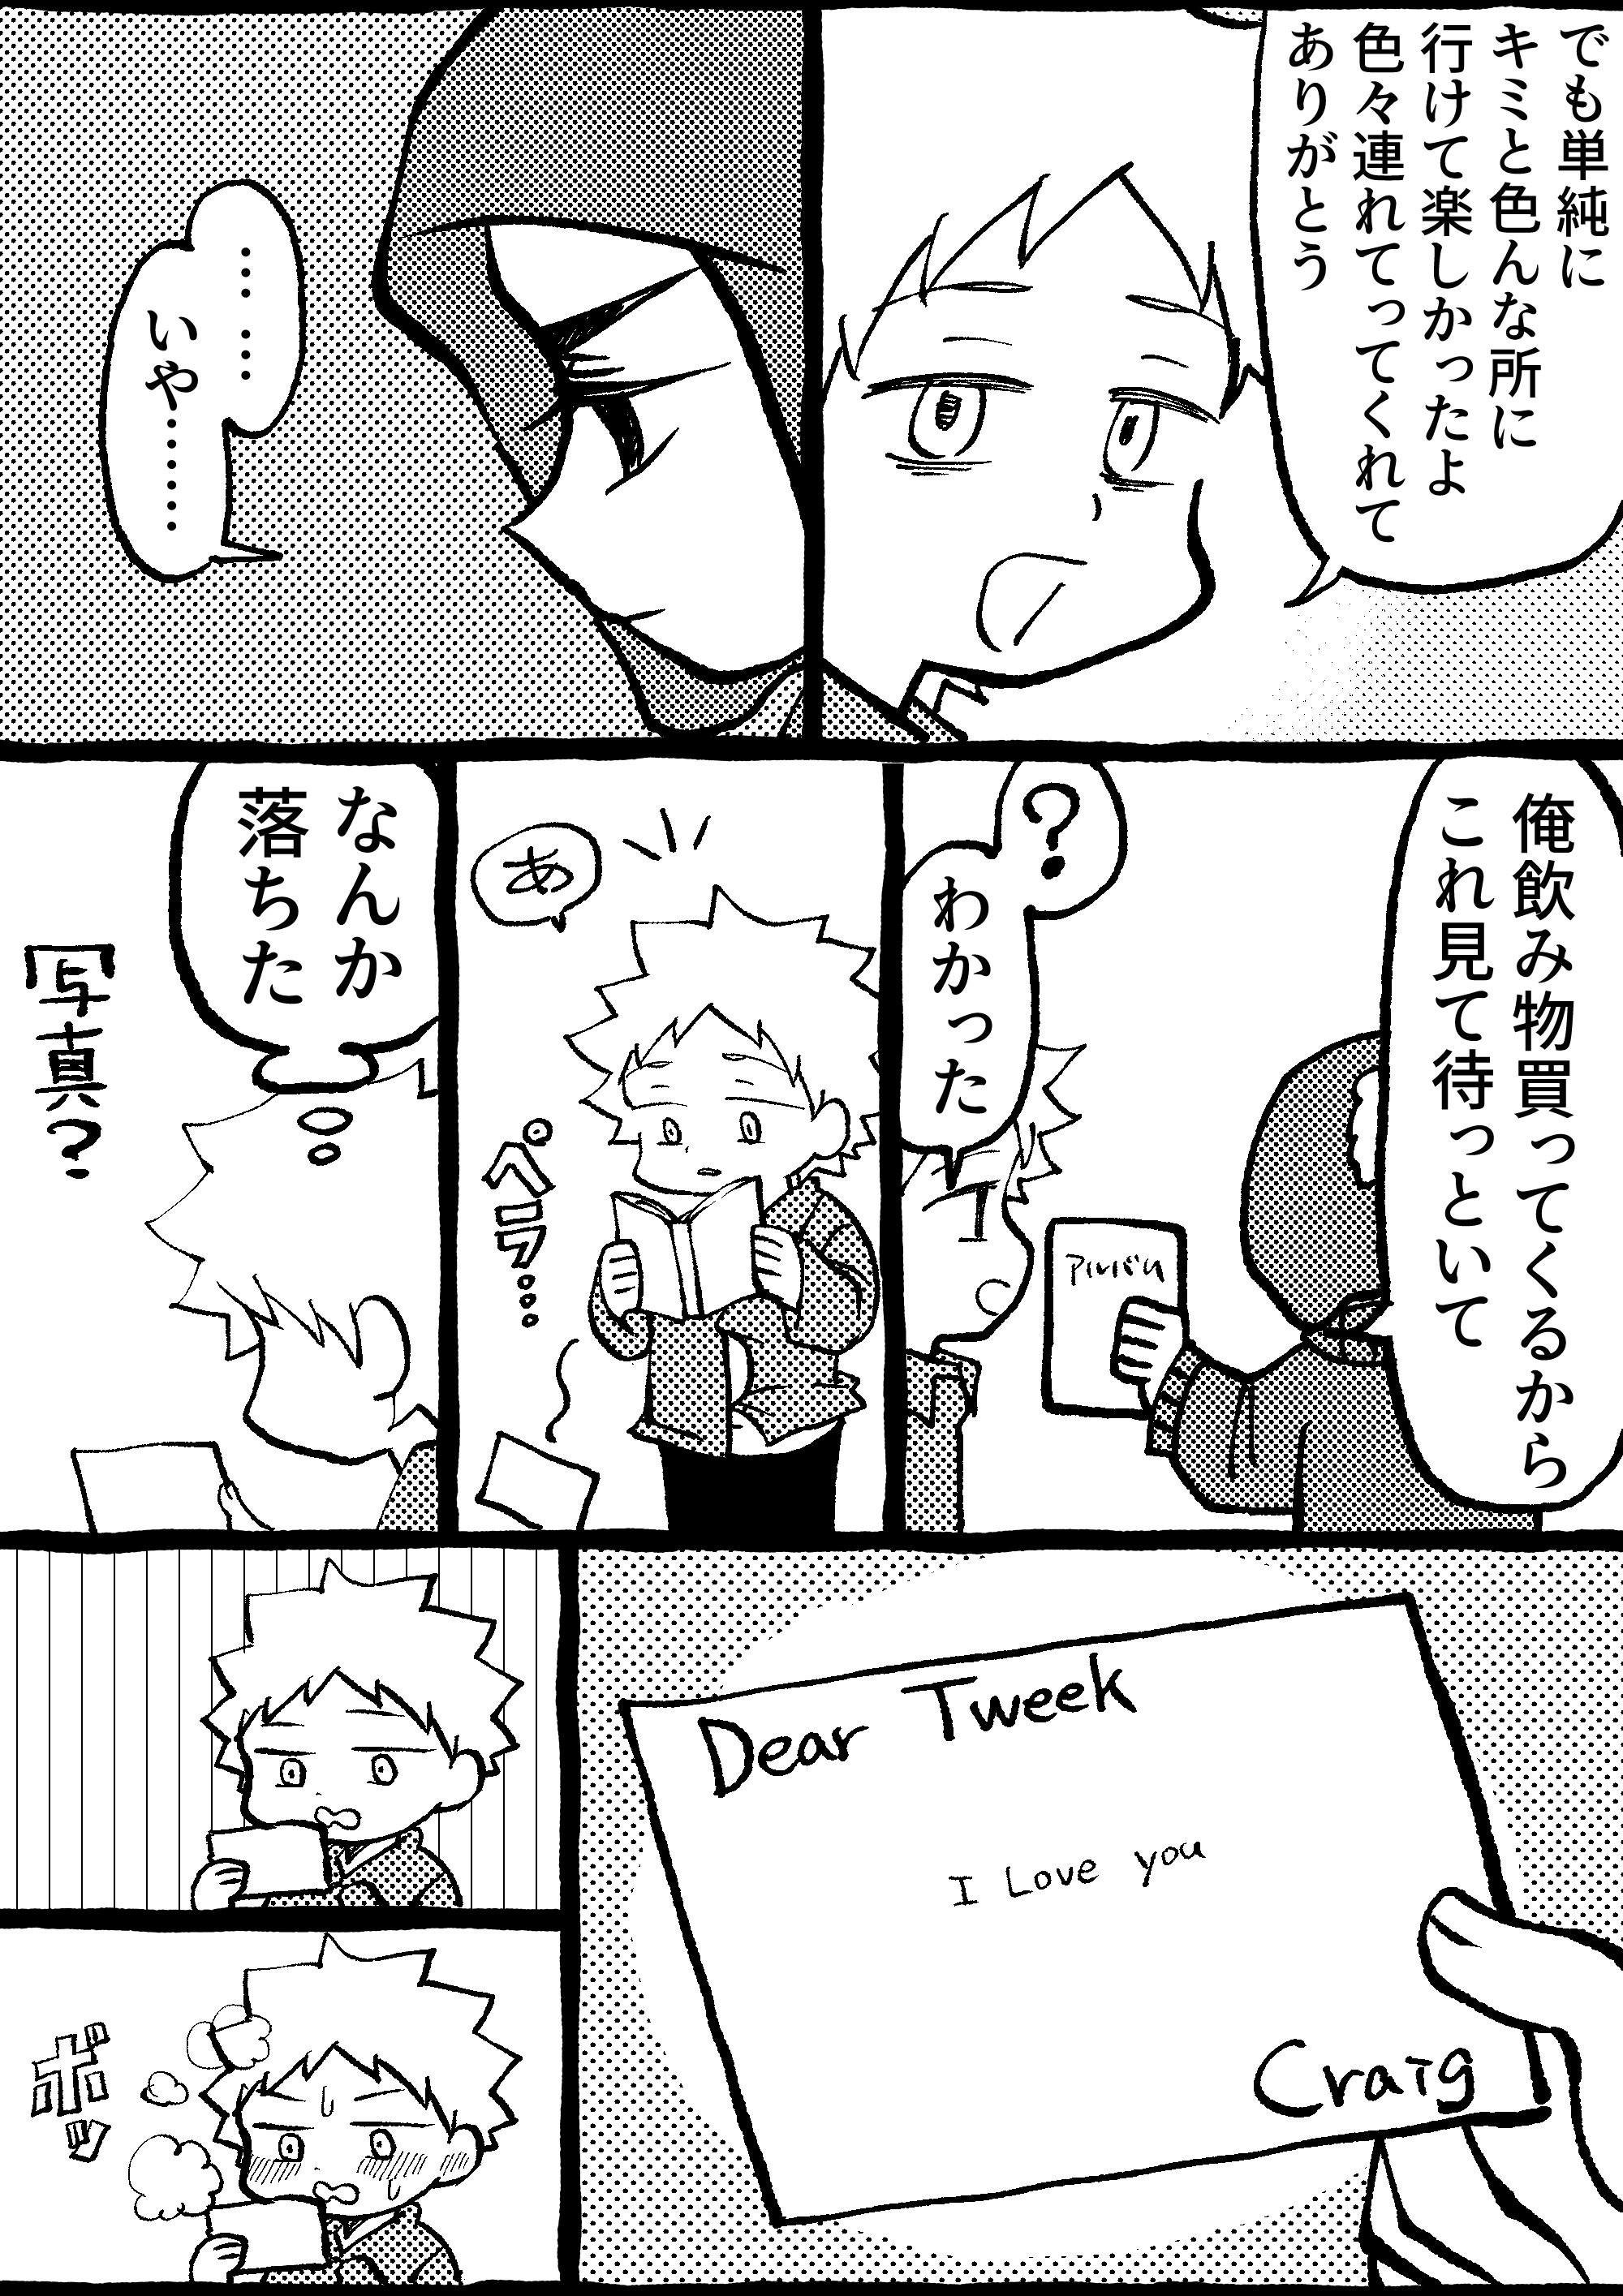 でも単純に
キミと色んな所に
行けて楽しかったよ
色々連れてってくれて
ありがとう
……
いや……
俺飲み物買ってくるから
これ見て待っといて
アルバム
？
わかった
あ
ペラ…
なんか
落ちた
写真？
Dear Tweek
I Love you
Craig
ボッ